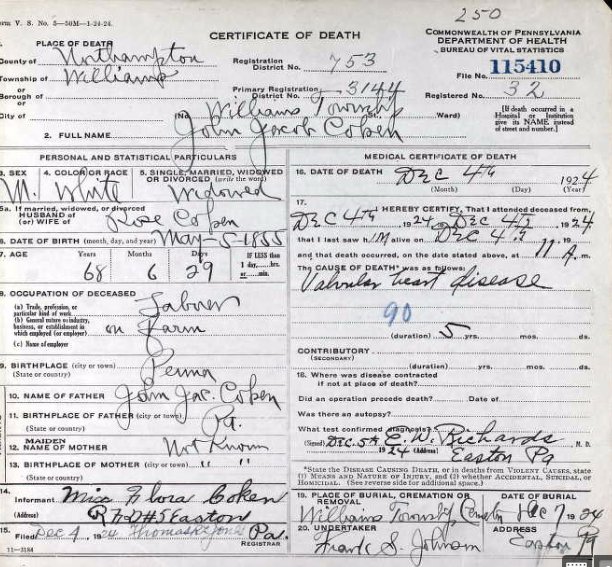 250
Form V. S. No. 5—50M—1-24-24.
CERTIFICATE OF DEATH
COMMONWEALTH OF PENNSYLVANIA
DEPARTMENT OF HEALTH
BUREAU OF VITAL STATISTICS
1. PLACE OF DEATH
County of Northampton
Township of Williams
or
Borough of
or
City of
Registration District No. 753
Primary Registration District No. 3144
File No. 115410
Registered No. 32
(No. Williams Township St., Ward)
[If death occurred in a Hospital or Institution give its NAME instead of street and number.]
2. FULL NAME John Jacob Coken
PERSONAL AND STATISTICAL PARTICULARS
3. SEX M.
4. COLOR OR RACE White
5. SINGLE, MARRIED, WIDOWED OR DIVORCED (write the word) Widowed
5a. If married, widowed, or divorced
HUSBAND of
(or) WIFE of Rose Coken
6. DATE OF BIRTH (month, day, and year) May-5-1855
7. AGE Years 68 Months 6 Days 29 IF LESS than 1 day, ....hrs. or ....min.
8. OCCUPATION OF DECEASED
(a) Trade, profession, or particular kind of work Laborer
(b) General nature of industry, business, or establishment in which employed (or employer) on Farm
(c) Name of employer
9. BIRTHPLACE (city or town) Penna
(State or country)
10. NAME OF FATHER John Jac. Coken
11. BIRTHPLACE OF FATHER (city or town) Pa.
(State or country)
12. MAIDEN NAME OF MOTHER Not Known
13. BIRTHPLACE OF MOTHER (city or town) " "
(State or country)
14.
Informant Miss Flora Coken
(Address) R.F.D #5 Easton Pa.
15.
Filed Dec 1924 Thomas
REGISTRAR
11—3184
MEDICAL CERTIFICATE OF DEATH
16. DATE OF DEATH Dec 4th 1924
(Month) (Day) (Year)
17.
I HEREBY CERTIFY, That I attended deceased from
Dec 4th 1924 Dec 4th 1924
that I last saw him alive on Dec 4th
and that death occurred, on the date stated above, at 11 A. m.
The CAUSE OF DEATH* was as follows:
Valvular heart disease
90
(duration) 5 yrs. mos. ds.
CONTRIBUTORY
(SECONDARY)
(duration) yrs. mos. ds.
18. Where was disease contracted
if not at place of death?
Did an operation precede death? Date of
Was there an autopsy?
What test confirmed diagnosis?
(Signed) E. W. Richards M. D.
Dec. 5th 1924 (Address) Easton Pa
*State the DISEASE CAUSING DEATH, or in deaths from VIOLENT CAUSES, state (1) MEANS AND NATURE OF INJURY, and (2) whether ACCIDENTAL, SUICIDAL, or HOMICIDAL. (See reverse side for additional space.)
19. PLACE OF BURIAL, CREMATION OR REMOVAL DATE OF BURIAL
Williams Township Dec 7 1924
20. UNDERTAKER ADDRESS
Frank S. Johnson Easton Pa